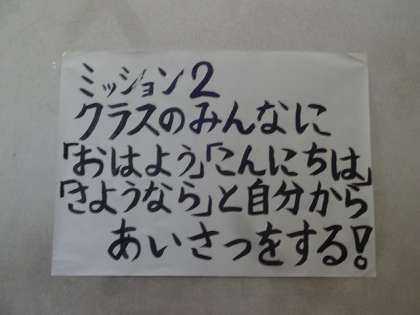 ミッション2
クラスのみんなに
「おはよう」「こんにちは」
「さようなら」と自分から
あいさつをする!